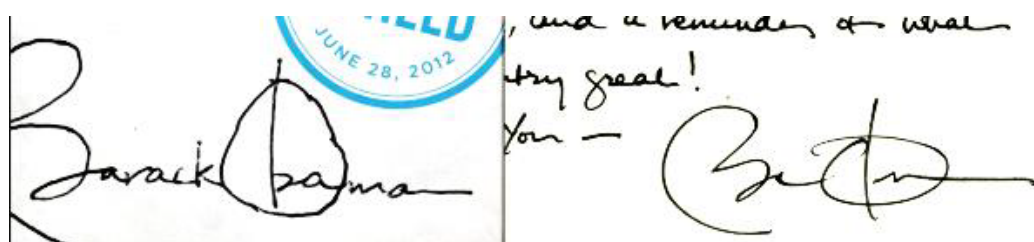 JUNE 28, 2012
Barack Obama
, and a reminder of what
try great!
You —